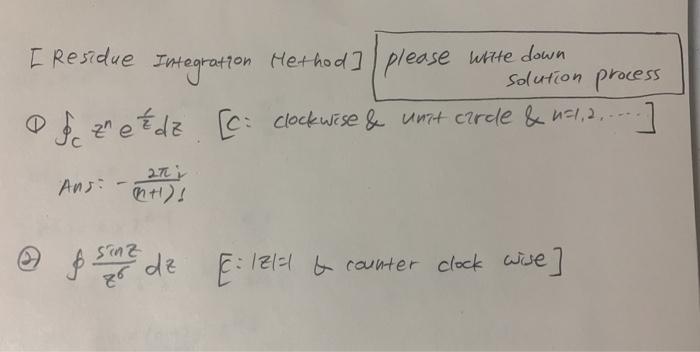 [Residue Integration Method] please write down
solution process
① ∮c zⁿ e^(1/z) dz. [C: clockwise & unit circle & n=1,2,....]
Ans: - 2πi/(n+1)!
② ∮ sinz/z⁶ dz [C: |z|=1 & counter clock wise]